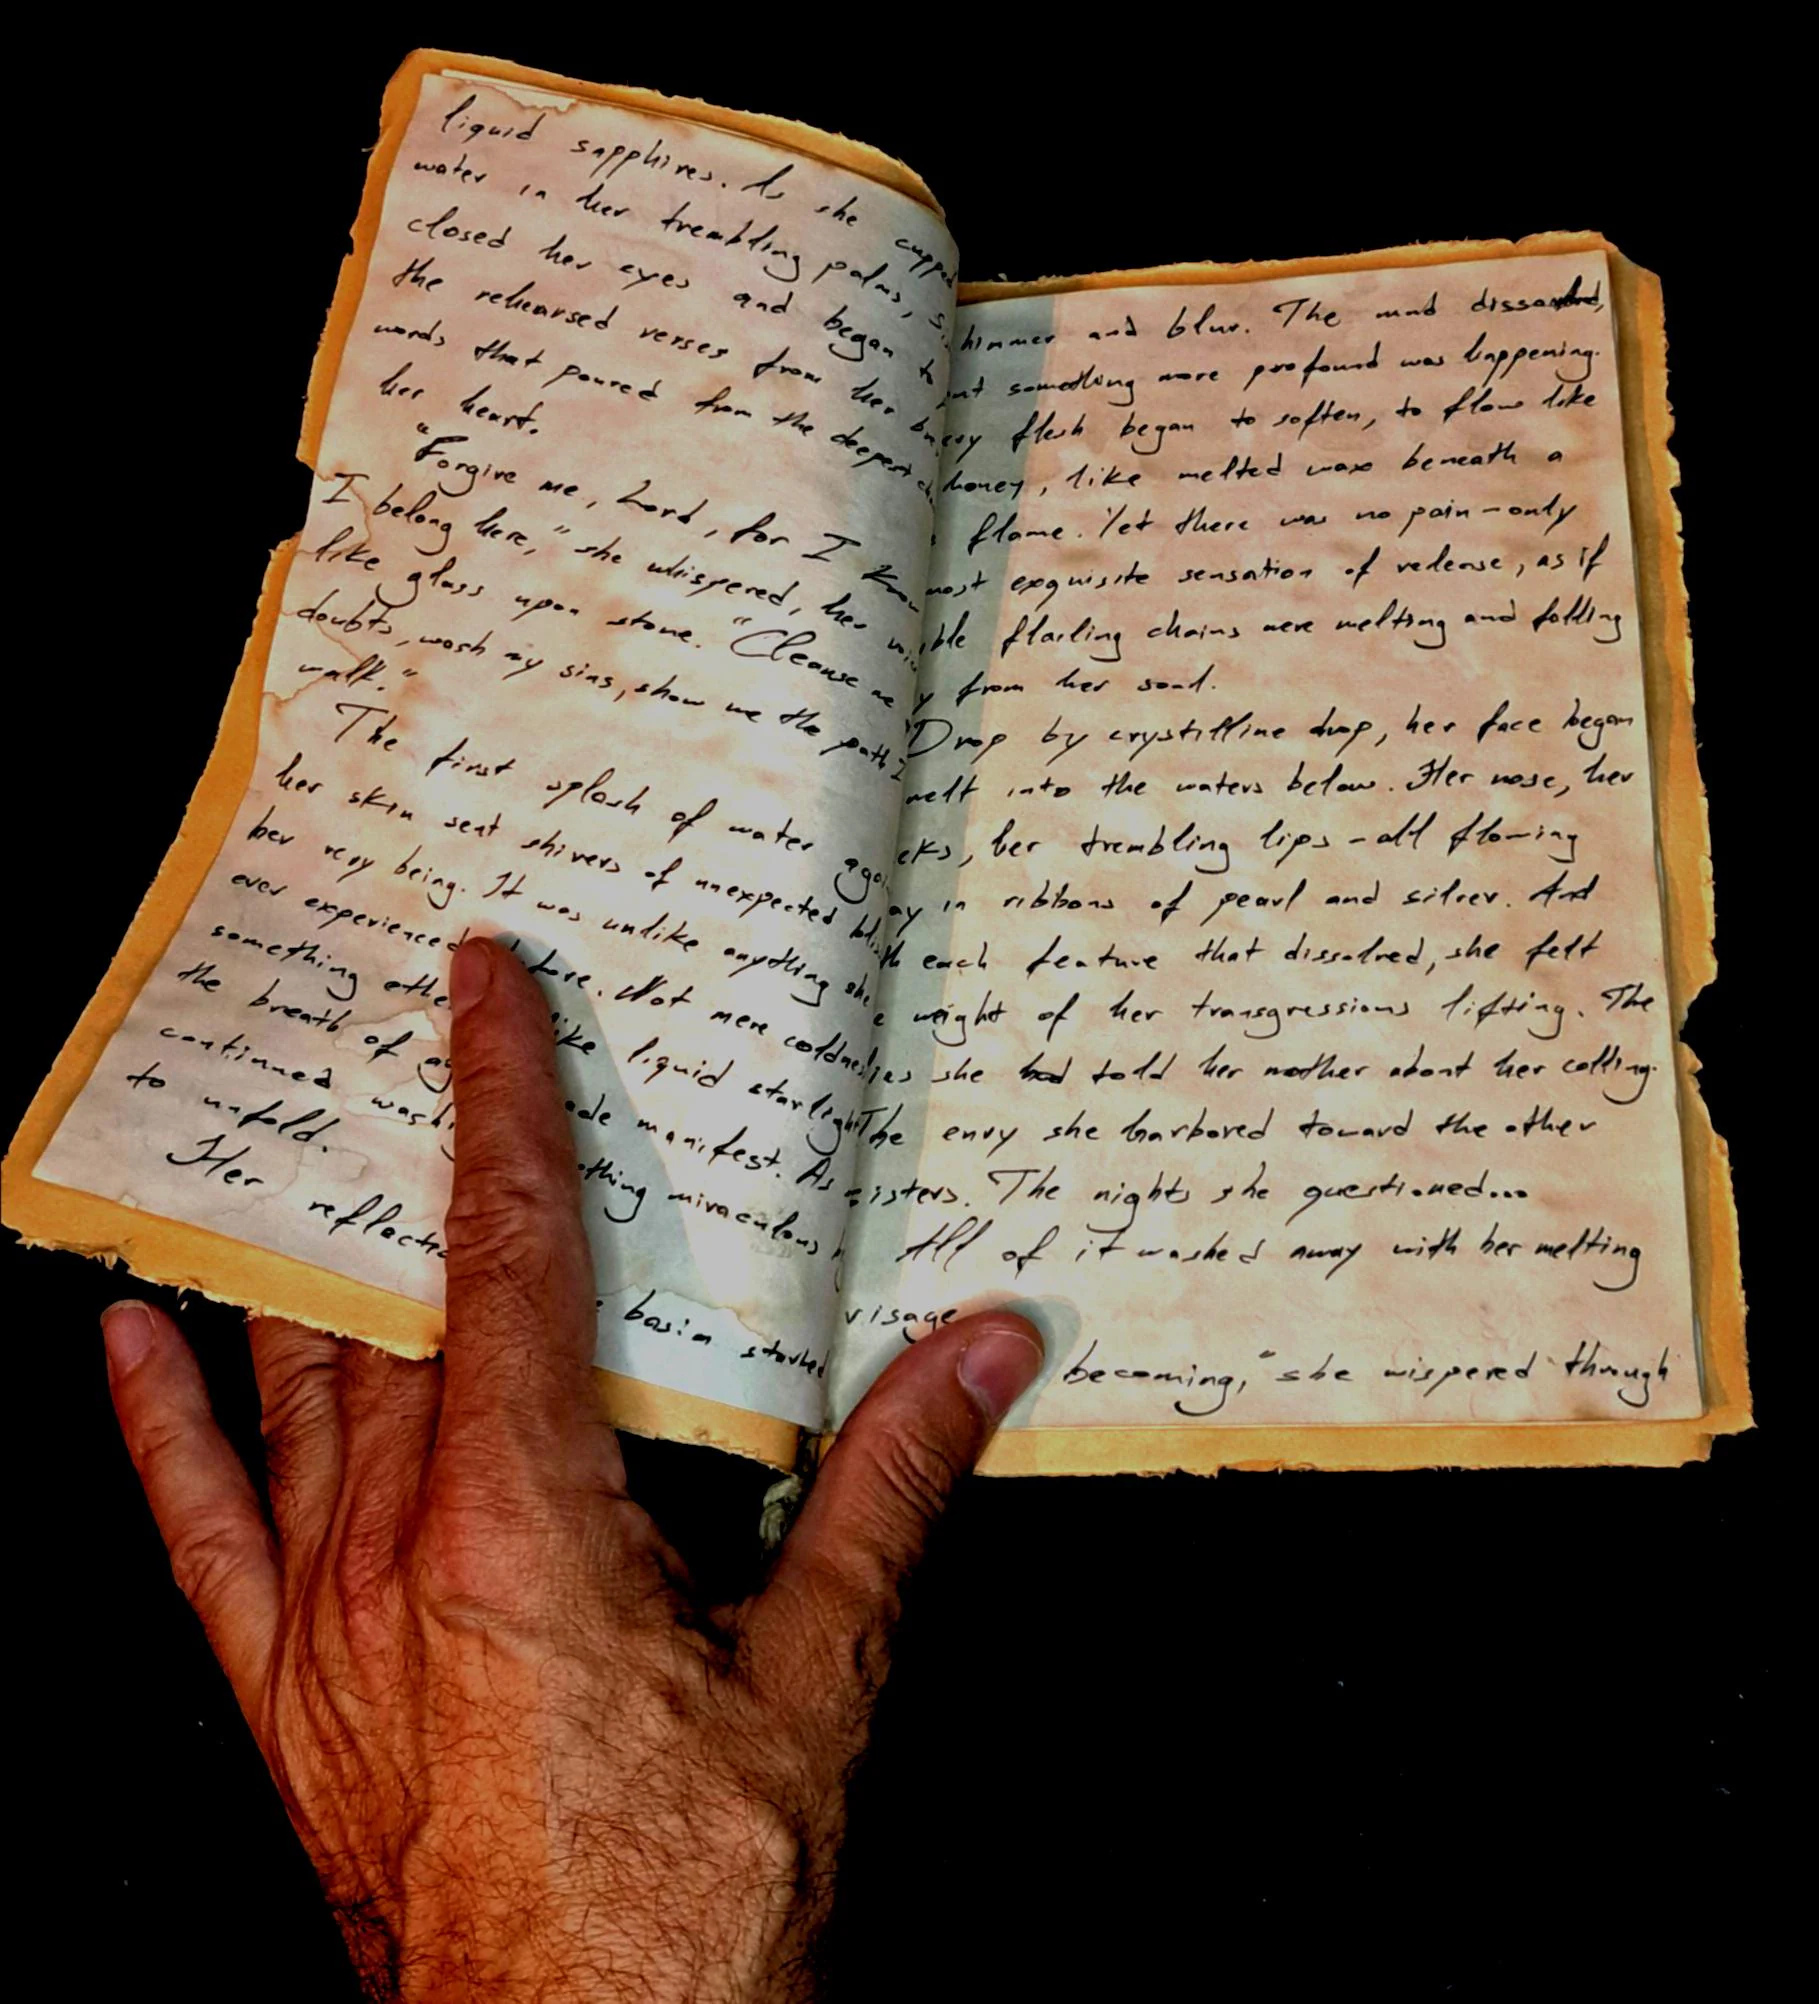 liquid sapphires. As she cupped
water in her trembling palms,
closed her eyes and began to
the rehearsed verses from her
words that poured from the deepest
her heart.
"Forgive me, Lord, for I know
I belong here," she whispered, her
like glass upon stone. "Cleanse me
doubts, wash my sins, show me the path I
walk."
The first splash of water
her skin sent shivers of unexpected
her very being. It was unlike anything she
ever experienced before. Not mere
something like liquid
the breath of manifest. As
continued miraculous
to unfold.
Her basin started
and blur. The dissolved,
something more profound was happening.
flesh began to soften, to flow like
honey, like melted wax beneath a
flame. Yet there was no pain—only
most exquisite sensation of release, as if
flailing chains were melting and falling
from her soul.
Drop by crystilline drop, her face began
melt into the waters below. Her nose, her
her trembling lips—all flowing
in ribbons of pearl and silver. And
each feature that dissolved, she felt
weight of her transgressions lifting. The
she had told her mother about her calling.
The envy she harbored toward the other
sisters. The nights she questioned...
All of it washed away with her melting
visage
becoming," she wispered through